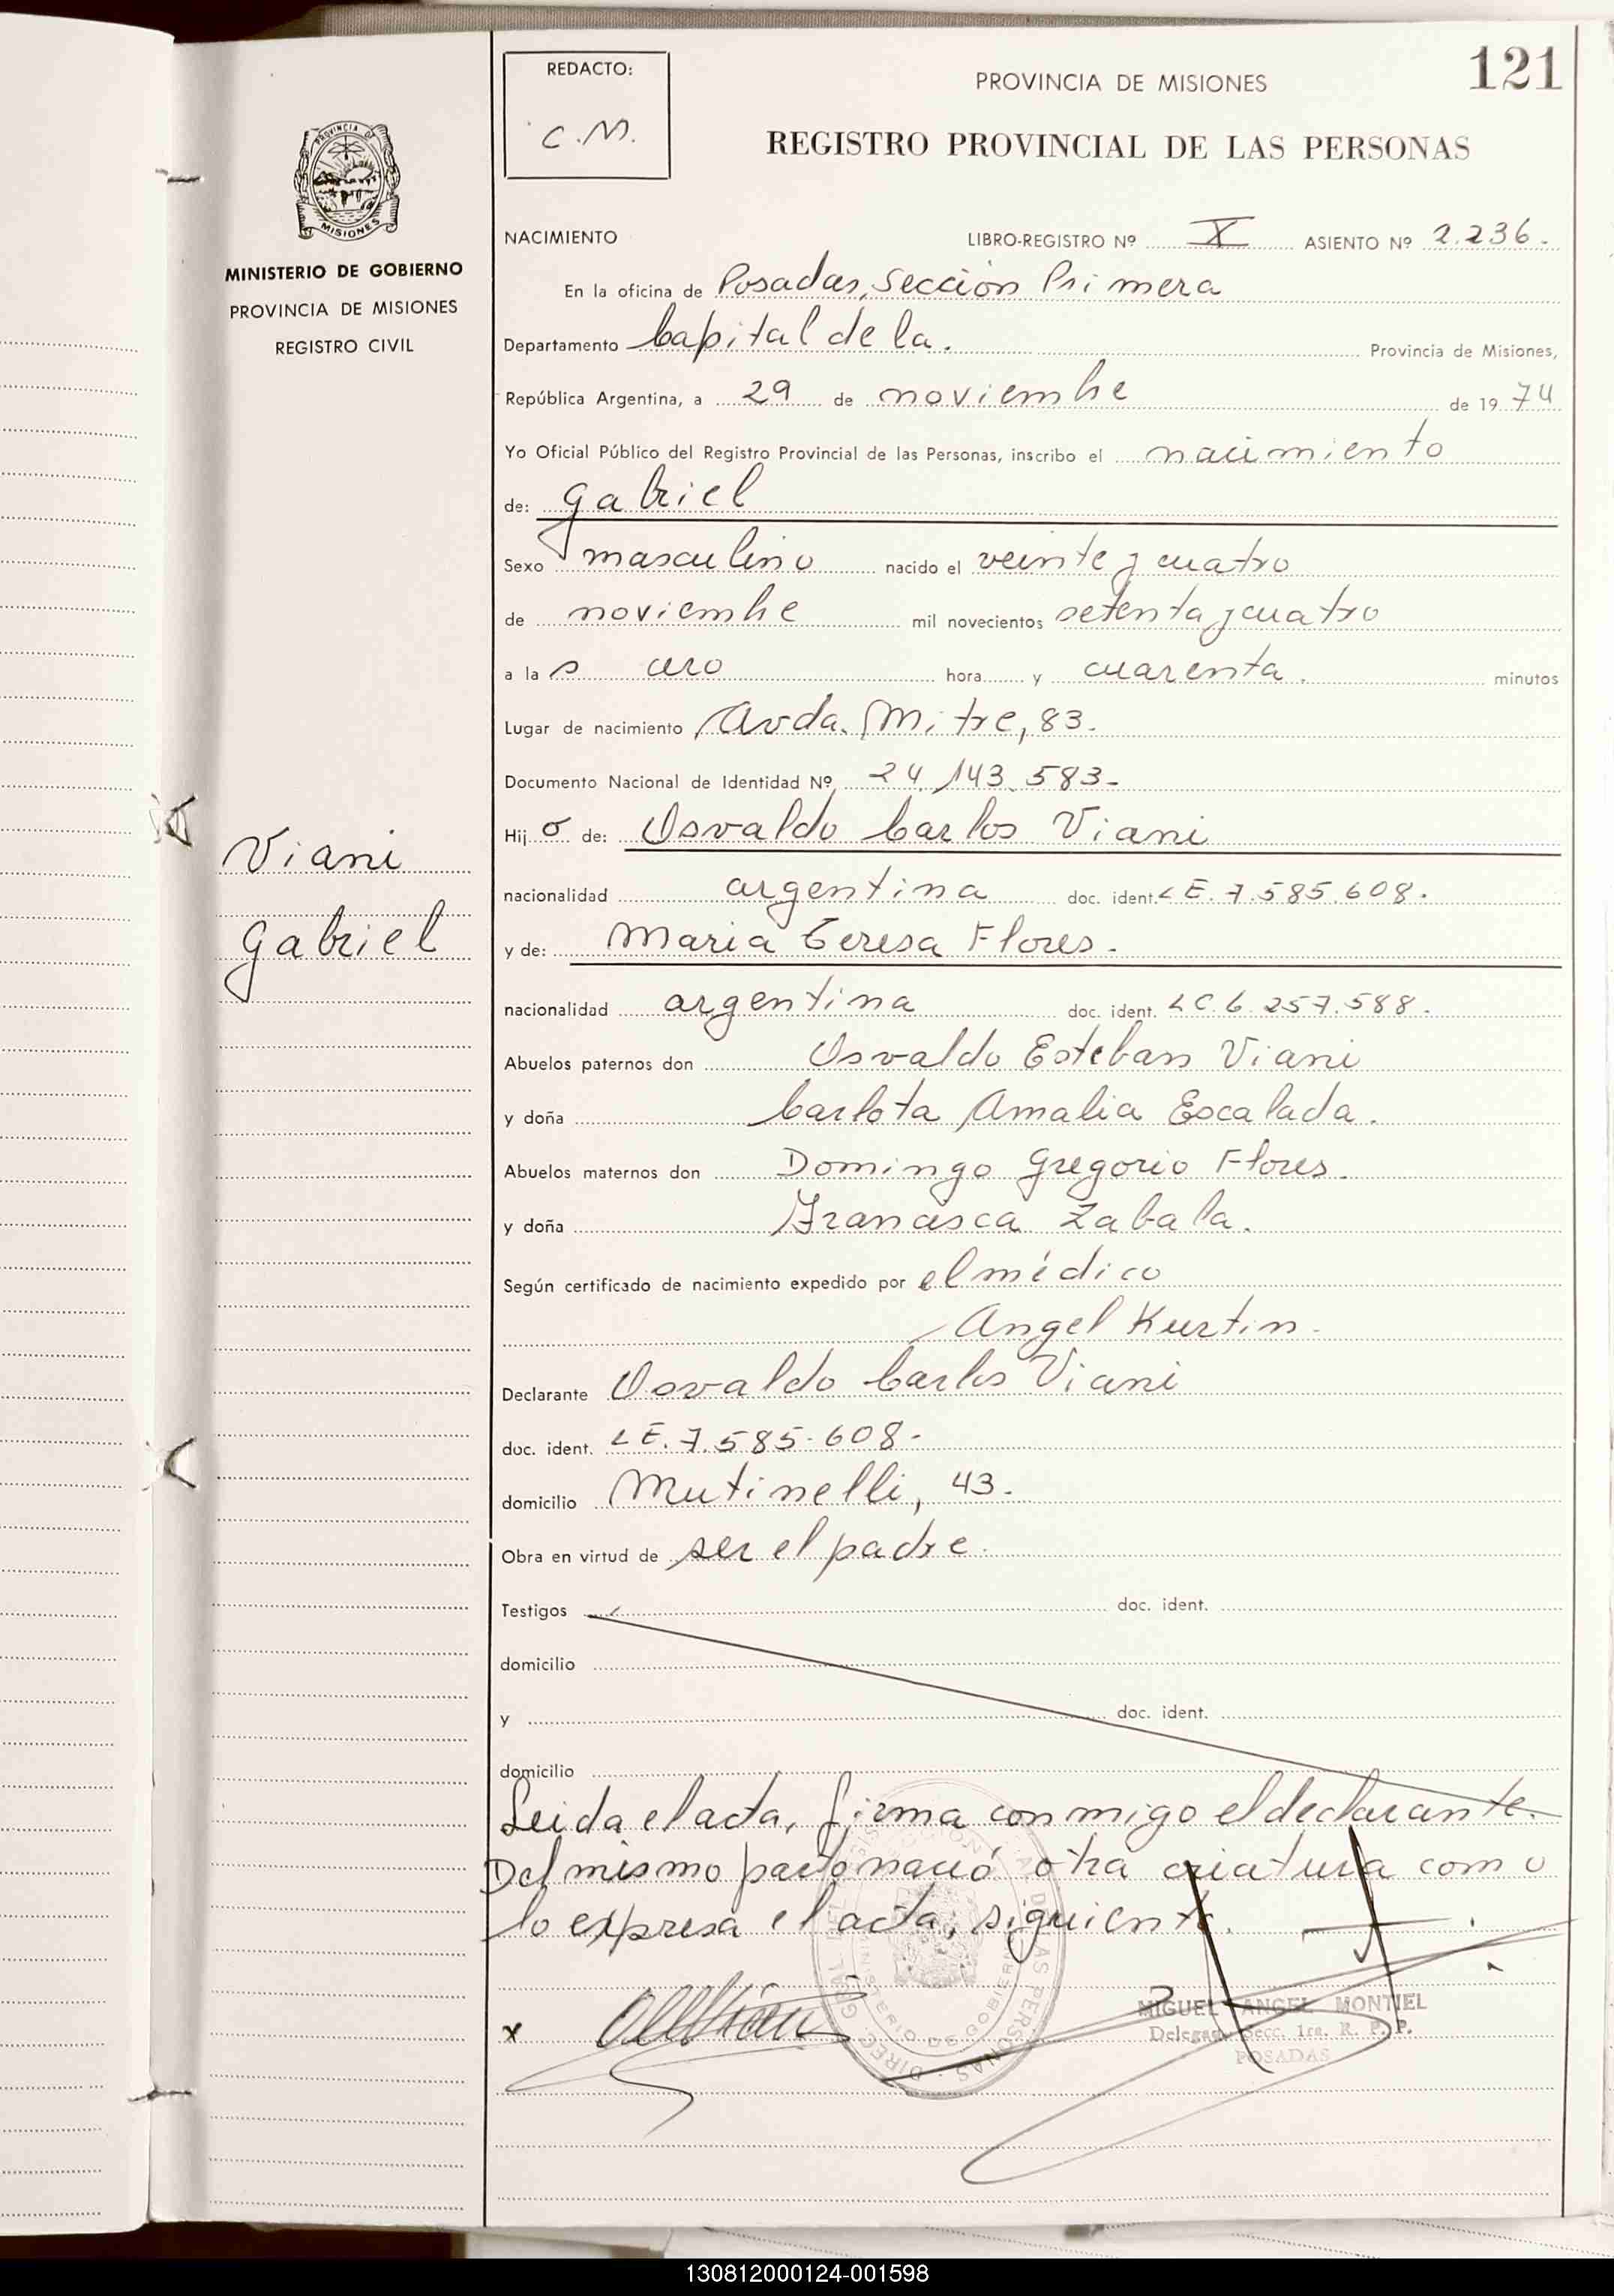 121
REDACTO:
C.M.
PROVINCIA DE MISIONES
REGISTRO PROVINCIAL DE LAS PERSONAS
PROVINCIA DE
MISIONES
MINISTERIO DE GOBIERNO
PROVINCIA DE MISIONES
REGISTRO CIVIL
NACIMIENTO LIBRO-REGISTRO Nº X ASIENTO Nº 2.236.
En la oficina de Posadas, Sección Primera
Departamento Capital de la. Provincia de Misiones,
República Argentina, a 29 de noviembre de 1974
Yo Oficial Público del Registro Provincial de las Personas, inscribo el nacimiento
de: Gabriel
Sexo masculino nacido el veinte y cuatro
de noviembre mil novecientos setenta y cuatro
a la s cero hora y cuarenta. minutos
Lugar de nacimiento Avda. Mitre, 83.
Documento Nacional de Identidad Nº 24.143.583-
Hijo de: Osvaldo Carlos Viani
nacionalidad argentina doc. ident. LE. 7.585.608.
y de: Maria Teresa Flores.
nacionalidad argentina doc. ident. LC. 6.257.588.
Abuelos paternos don Osvaldo Esteban Viani
y doña Carlota Amalia Escalada.
Abuelos maternos don Domingo Gregorio Flores.
y doña Francisca Zabala.
Según certificado de nacimiento expedido por el médico
Angel Kurtin.
Declarante Osvaldo Carlos Viani
doc. ident. LE. 7.585.608.
domicilio Mutinelli, 43.
Obra en virtud de ser el padre.
Testigos doc. ident.
domicilio
y doc. ident.
domicilio
Leida el acta, firma conmigo el declarante.
Del mismo parto nació otra criatura como
lo expresa el acta, siguiente.
Viani
Gabriel
x
MIGUEL ANGEL MONTIEL
Delegado Secc. 1ra. R. P. P.
POSADAS
130812000124-001598